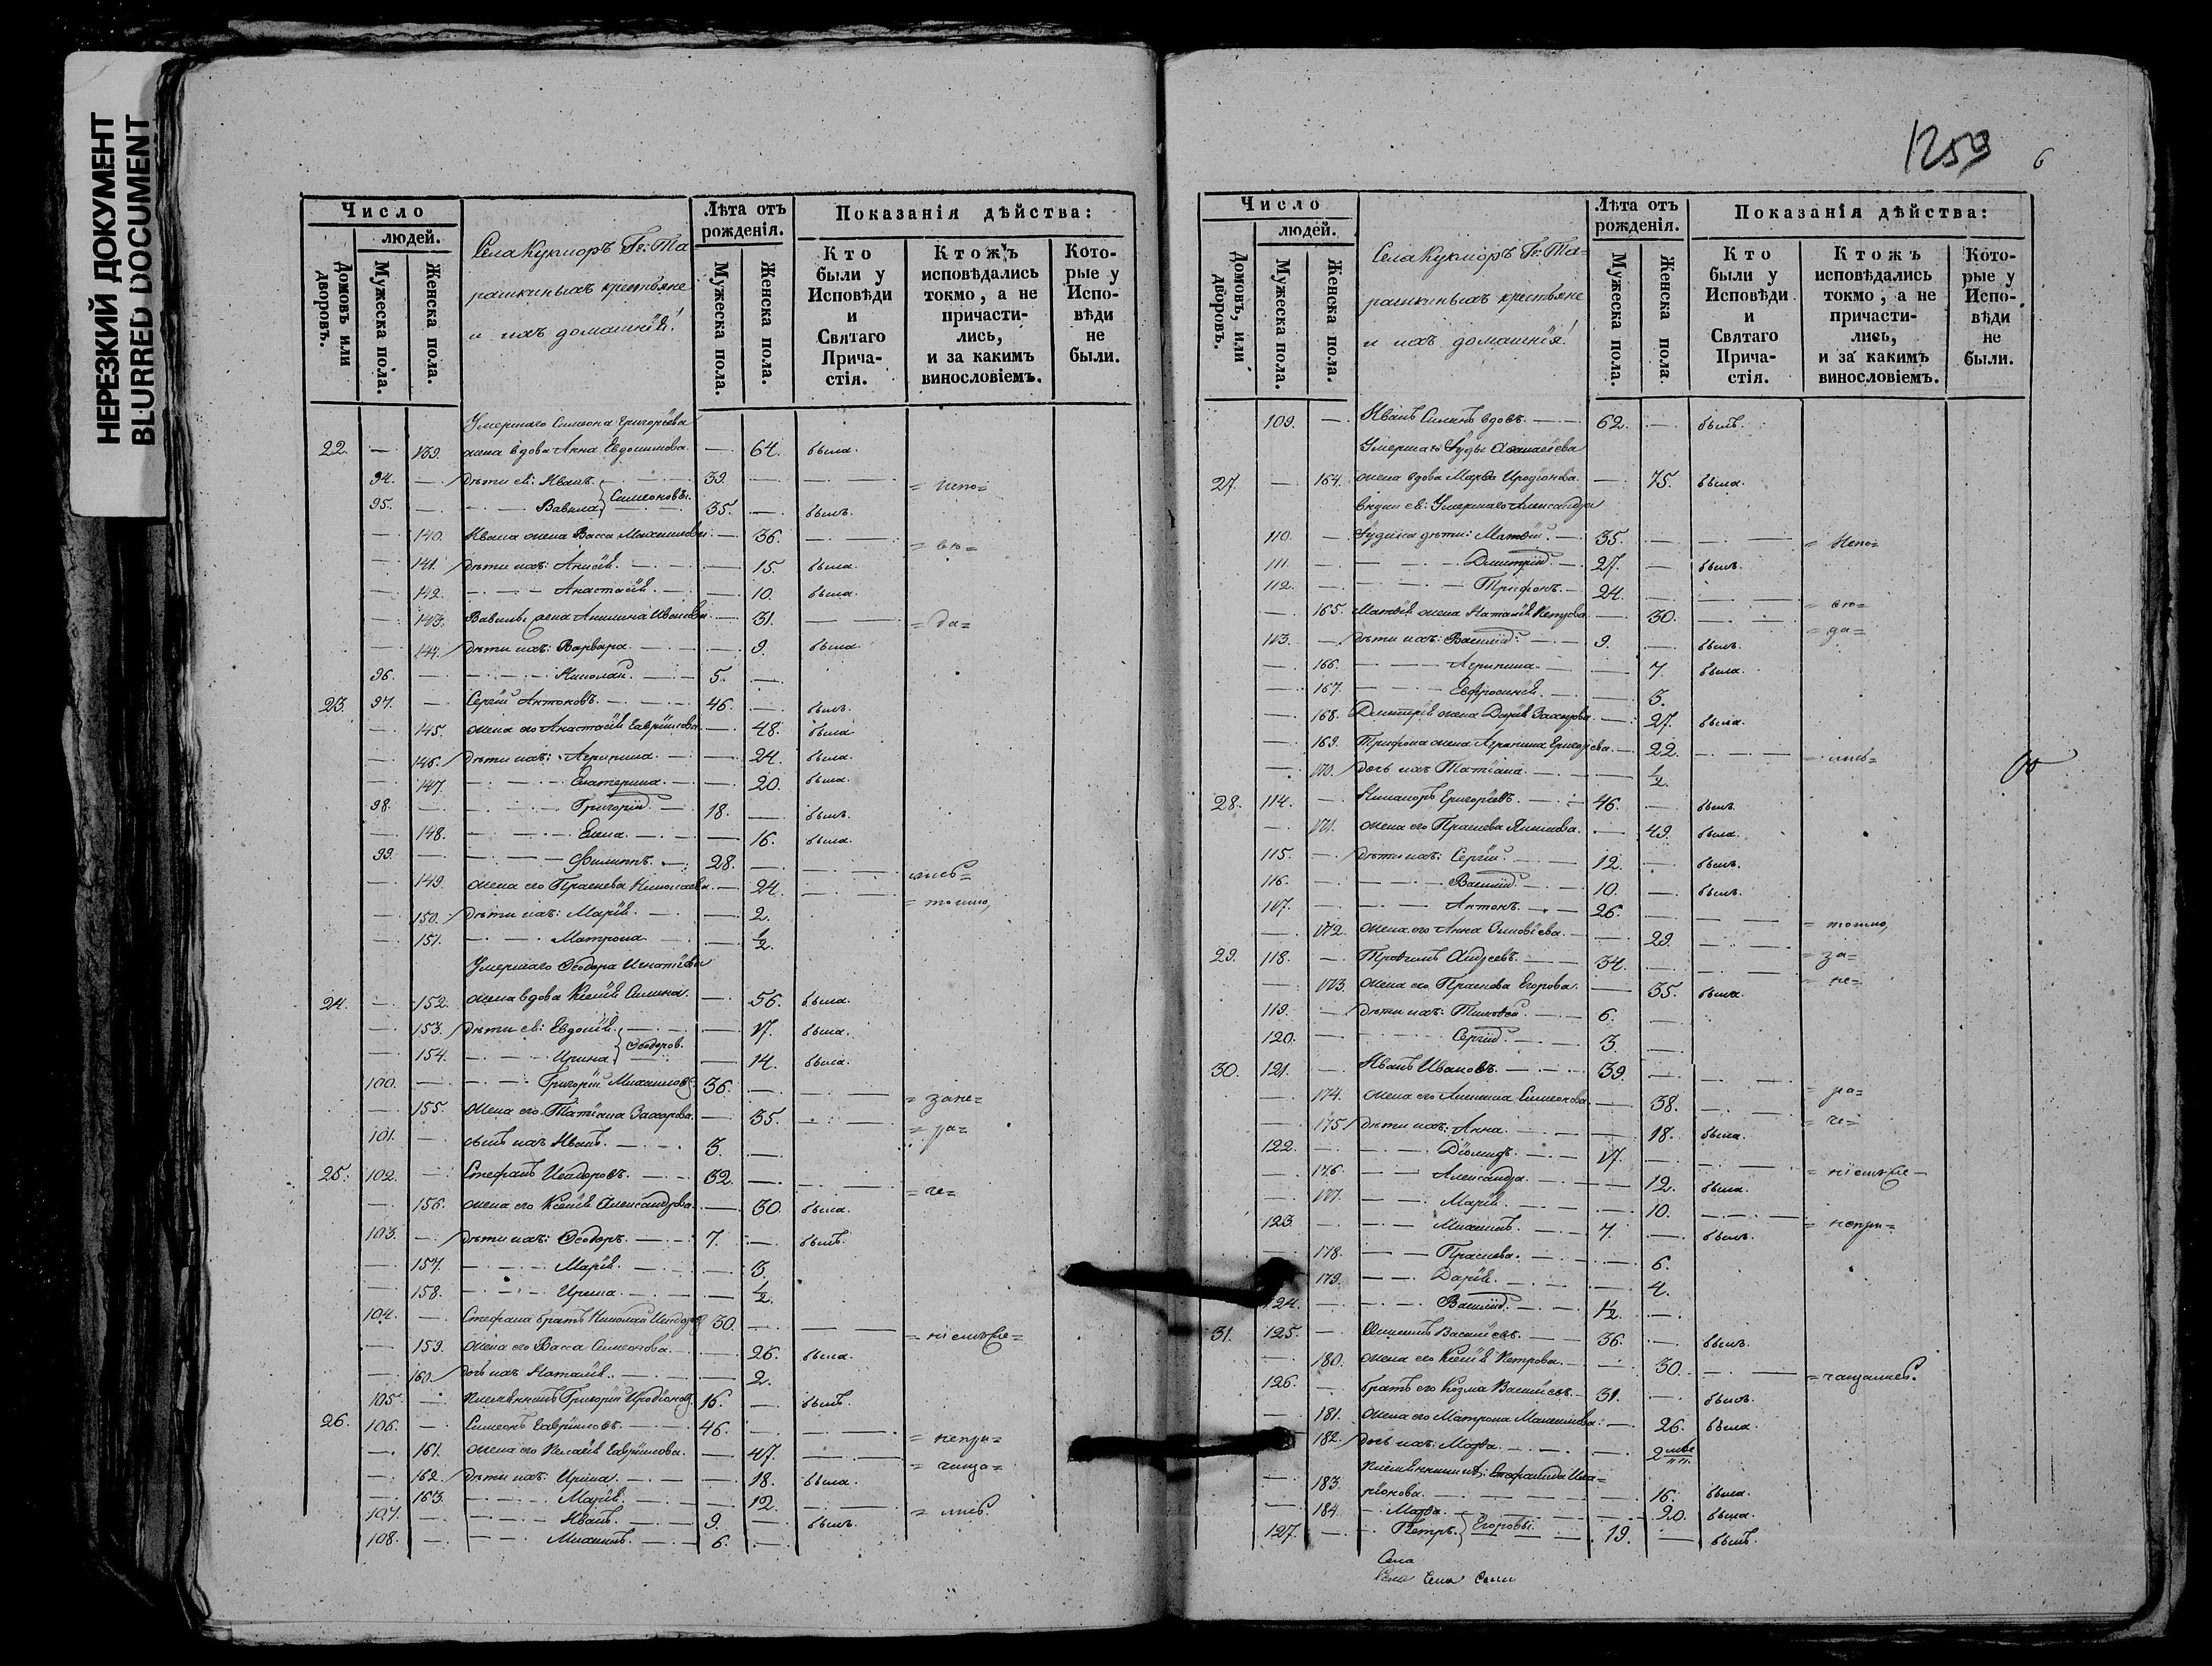 НЕРЕЗКИЙ ДОКУМЕНТ
BLURRED DOCUMENT
Число
людей.
Домовъ или дворовъ.
Мужеска пола.
Женска пола.
Села Кукморъ Гг: Та
рашкиныхъ крестьяне
и ихъ домашнія!
Лѣта отъ рожденія.
Мужеска пола.
Женска пола.
Показанія дѣйства:
Кто были у Исповѣди и Святаго Причастія.
Ктожъ исповѣдались токмо, а не причастились, и за какимъ винословіемъ.
Которые у Исповѣди не были.
Умершаго Симеона Григорьева
22. — 139. жена вдова Анна Евдокимова — 64. была.
94. — дѣти ея: Иванъ 39. — = испо=
95. — Вавила } Симеоновы. 35. — былъ.
— 140. Ивана жена Васса — 36. = вѣ=
— 141. дѣти ихъ: Анисія — 15. была.
— 142. Анастасія — 10. была.
— 143. Вавилы жена Акилина Иванова — 31. = да=
— 144. дѣти ихъ: Варвара — 9. была.
96. — Николай 5. —
23. 97. — Сергій Антоновъ 46. — былъ.
— 145. жена его Анастасія Гавріилова — 48. была
— 146. дѣти ихъ: Агрипина — 24. была.
— 147. Екатерина — 20. была.
98. — Григорій 18. — былъ.
— 148. Елена — 16. была.
99. — Филиппъ 28. —
— 149. жена его Праскева Николаева — 24. лись=
— 150. дѣти ихъ: Марія — 2. = токмо,
— 151. Матрона — 1/2
Умершаго Ѳеодора Игнатьева
24. — 152. жена вдова Ксенія — 56. была.
— 153. дѣти ея: Евдокія — 17. была.
— 154. Ирина } Ѳеодоров. — 14. была.
100. — Григорій Михаиловъ 36. — = зане=
— 155. жена его Татіана Захарова — 35. = ра=
101. — сынъ ихъ Иванъ 3. —
25. 102. — Стефанъ Исидоровъ 32. — = че=
— 156. жена его Ксенія Александрова — 30. была.
103. — дѣти ихъ: Ѳеодоръ 7. — былъ.
— 157. Марія — 3.
— 158. Ирина — 1/2.
104. — Стефана братъ Николай 30. — = ніемъ
— 159. жена его Васса Симеонова — 26. была.
— 160. дочь ихъ Наталія — 2.
105. — племянникъ Григорій Иродіонов. 16. — былъ.
26. 106. — Симеонъ Гавріиловъ 46. — = непри=
— 161. жена его Пелагія Гавріилова — 47. = чаща=
— 162. дѣти ихъ: Ирина — 18. была.
— 163. Марія — 12.
107. — Иванъ 9. — былъ. = лись.
108. — Михаилъ 6. —
1259
6
Число
людей.
Домовъ, или дворовъ.
Мужеска пола.
Женска пола.
Села Кукморъ Гг: Та=
рашкиныхъ крестьяне
и ихъ домашнія!
Лѣта отъ рожденія.
Мужеска пола.
Женска пола.
Показанія дѣйства:
Кто были у Исповѣди и Святаго Причастія.
Ктожъ исповѣдались токмо, а не причастились, и за какимъ винословіемъ.
Которые у Исповѣди не были.
109. — Иванъ вдовъ 62. — былъ.
Умершаго Іуды Аѳанасіева
27. — 164. жена вдова Марѳа Иродіонова — 75. была.
внуки ея: Умершаго Александра
110. — Іудина дѣти: Матвій 35. — = Испо=
111. — Дмитрій 27. — былъ.
112. — Трифонъ 24. — = вѣ=
— 165. Матвія жена Наталія — 30. = да=
113. — дѣти ихъ: Василій 9. — былъ.
— 166. Агрипина — 7. была.
— 167. Евфросинія — 3.
— 168. Дмитрія жена Дарія Захарова — 27. была.
— 169. Трифона жена Агрипина Григорьева — 22. = лись=
— 170. дочь ихъ Татіана — 1/2.
28. 114. — Никаноръ Григорьевъ 46. — былъ.
— 171. жена его Праскева — 49. была.
115. — дѣти ихъ: Сергій 12. — былъ.
116. — Василій 10. — былъ.
117. — Антонъ 26. —
— 172. жена его Анна — 29. = токмо,
29. 118. — Трофимъ Андреевъ 34. — = за=
— 173. жена его Праскева Егорова — 35. была. = не=
119. — дѣти ихъ: Тимоѳей 6. —
120. — Сергій 3. —
30. 121. — Иванъ Ивановъ 39. — = ра=
— 174. жена его Симеонова — 38. = че=
— 175. дѣти ихъ: Анна — 18. была.
122. — Діомидъ 17. — = ніемъ
— 176. Александра — 12. была.
— 177. Марія — 10. = непри=
123. — Михаилъ 7. — былъ.
— 178. Праскева — 6.
— 179. Дарія — 4.
124. — Василій 1/2. —
31. 125. — Василіевъ 36. — былъ.
— 180. жена его Ксенія Петрова — 30. = чащались.
126. — братъ его Козма Василіевъ 31. — былъ.
— 181. жена его Матрона — 26. была
— 182. дочь ихъ: Марѳа — 2
племянники: Стефанида Ила=
— 183. ріонова — 16. была.
— 184. Марѳа — 20. была.
127. — Петръ } Егоровы 19. — былъ.
Села
Села Села